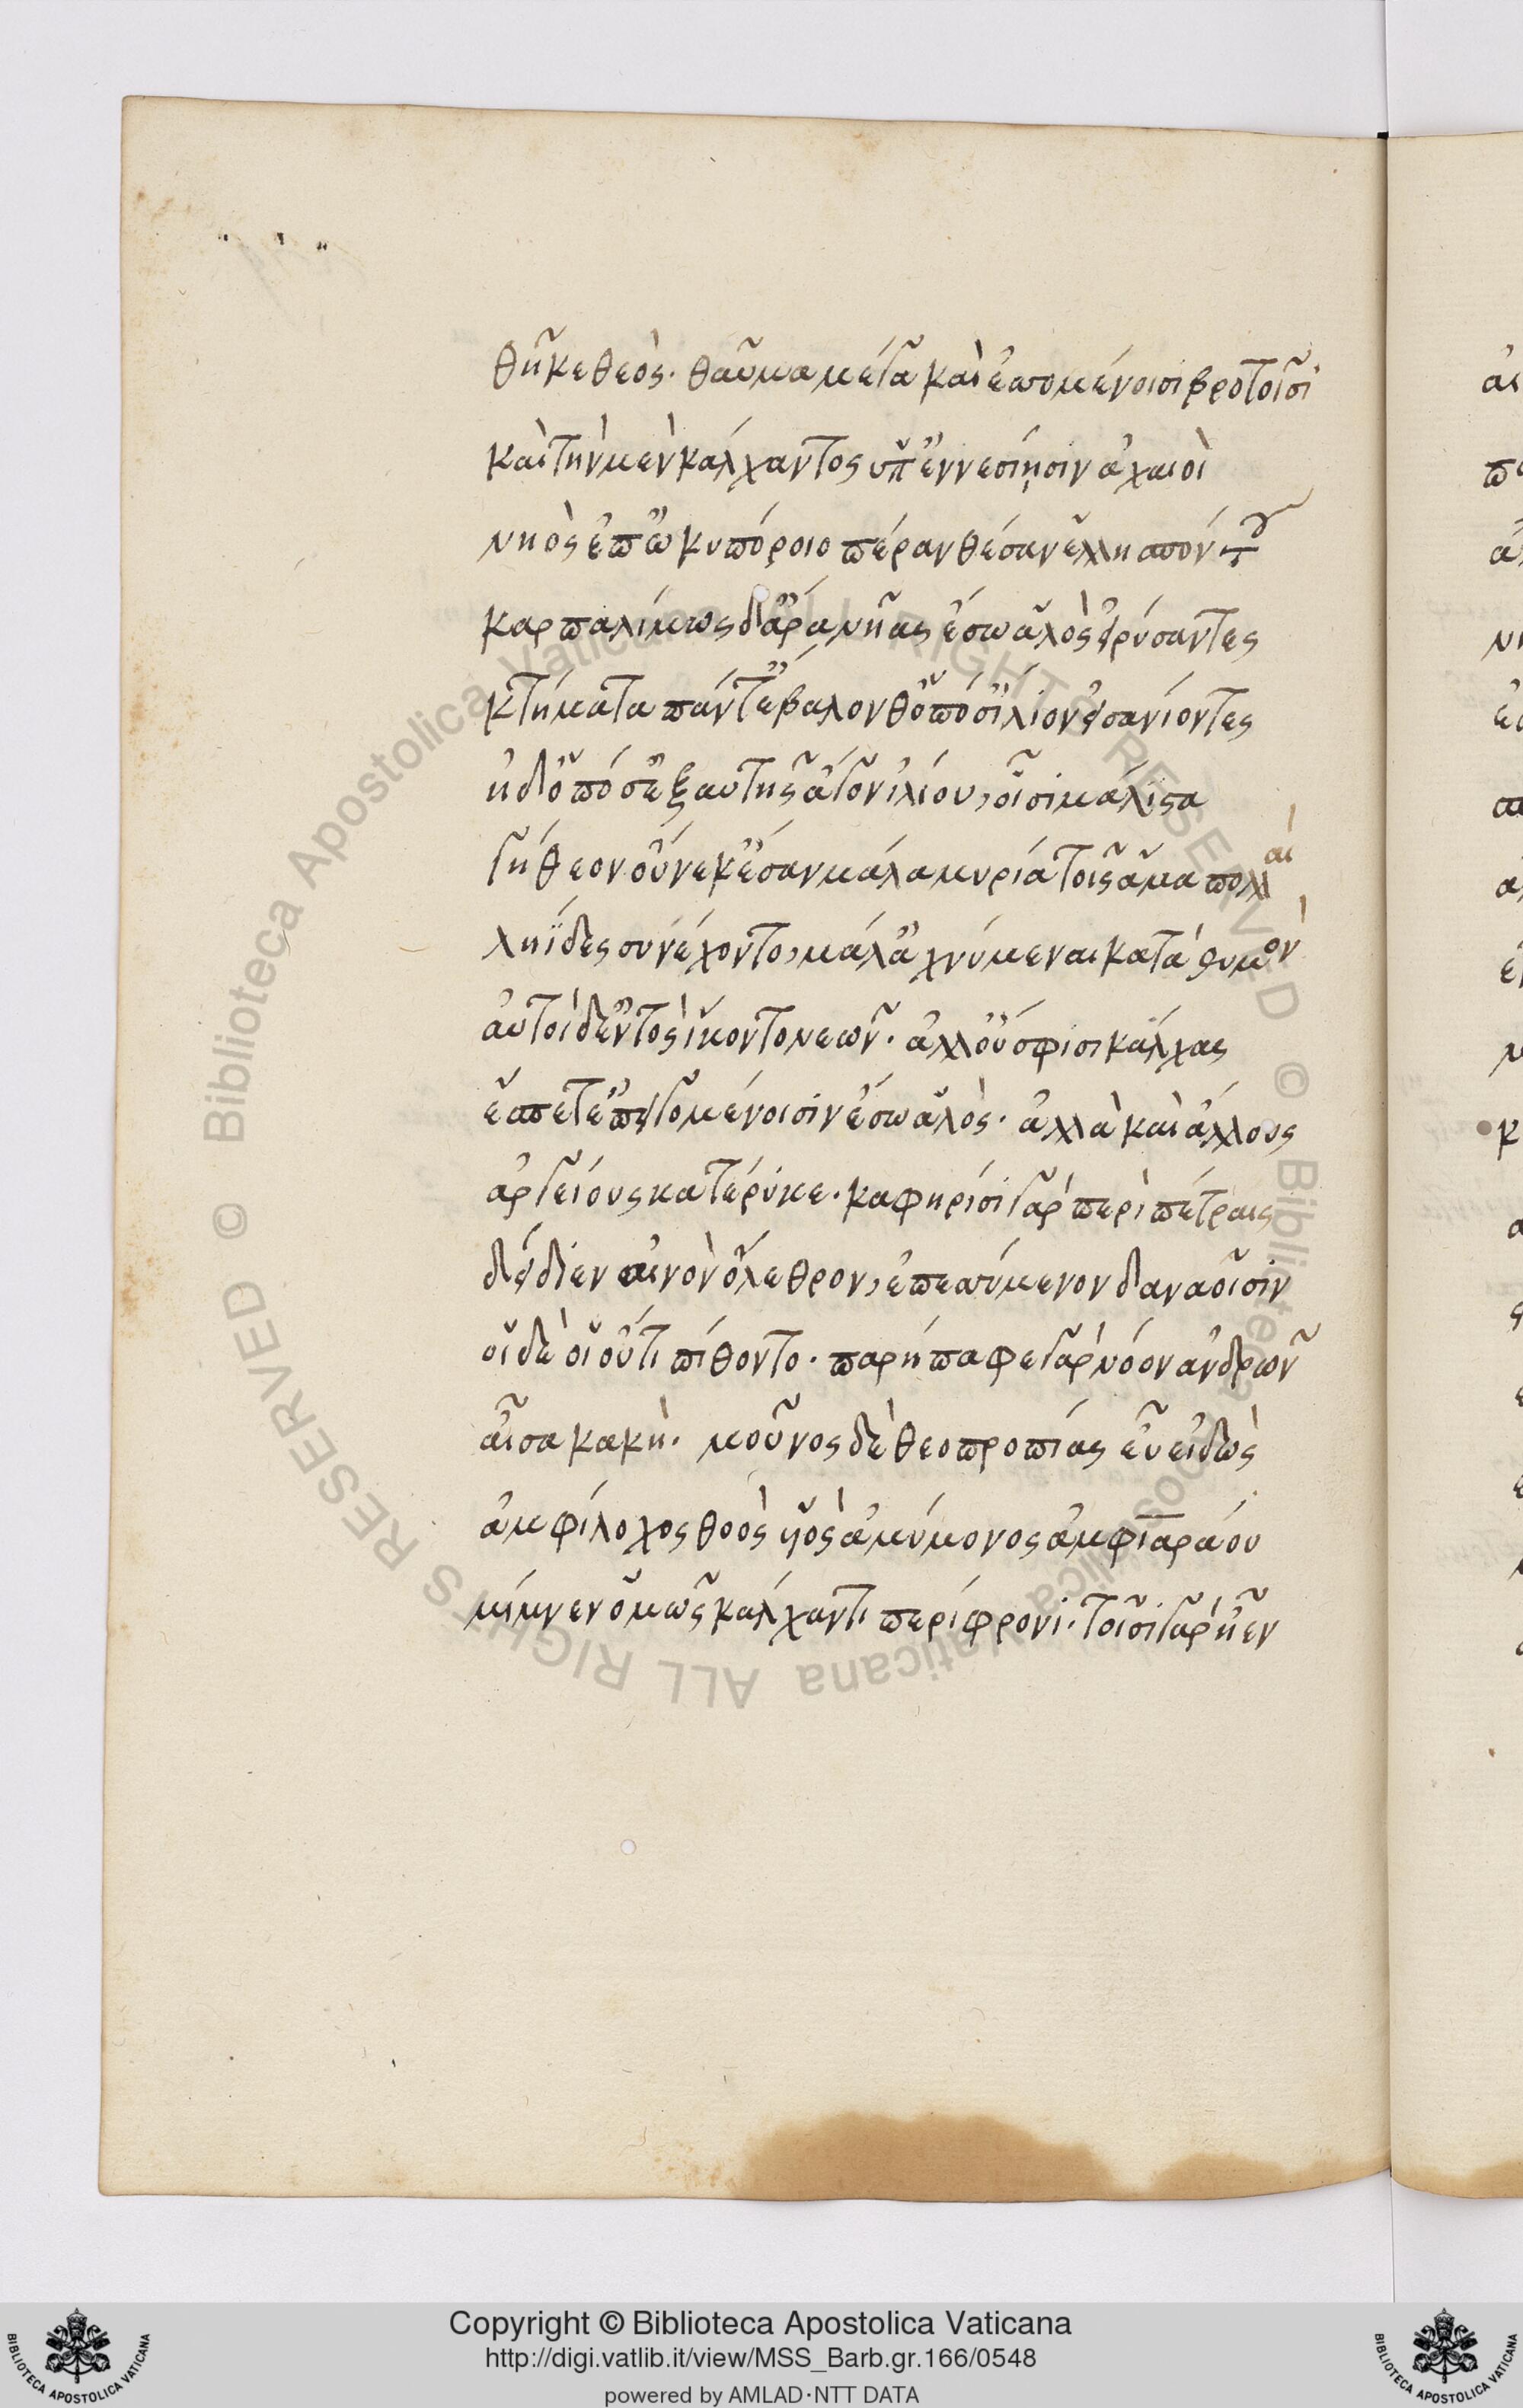 θῆκε θεὸς· θαῦμα μέγα καὶ ἐπομένοισι βροτοῖσι
καὶ τὴν μὲν κάλχαντος ὑπ' ἐννεσίῃσιν ἀχαιοὶ
νηὸς ἐπ' ὠκυπόροιο πέραν θέσαν ἑλλησπόντου
καρπαλίμως δ' ἄρα νῆας ἔσω ἁλὸς εἰρύσαντες
κτήματα πάντ' ἔβαλον θ' ὁπόσ' ἴλιον εἰσανίοντες
ἠδ' ὁπόσ' ἐξ αὐτῆς ἄγον ἰλίου, οἷσι μάλιστα
γήθεον οὕνεκ' ἔσαν μάλα μυρία τοῖς ἅμα πολλαὶ
ληΐδες συνέχοντο, μάλ' ἀχνύμεναι κατὰ θυμὸν
αὐτοὶ δ' ἐντὸς ἵκοντο νεῶν. ἀλλ' οὔ σφισι κάλχας
ἕσπετ' ἐπειγομένοισιν ἔσω ἁλὸς· ἀλλὰ καὶ ἄλλους
ἀργείους κατέρυκε. καφηρίσι γὰρ περὶ πέτραις
δείδιεν αἰνὸν ὄλεθρον, ἐπεσσύμενον δαναοῖσιν
οἱ δέ οἱ οὔτι πίθοντο. παρήπαφε γὰρ νόον ἀνδρῶν
αἶσα κακὴ. μοῦνος δὲ θεοπροπίας εὖ εἰδὼς
ἀμφίλοχος θοὸς υἱὸς ἀμύμονος ἀμφιαράου
μίμνεν ὁμῶς κάλχαντι περίφρονι. τοῖσι γὰρ ἦεν
Copyright © Biblioteca Apostolica Vaticana
http://digi.vatlib.it/view/MSS_Barb.gr.166/0548
powered by AMLAD·NTT DATA